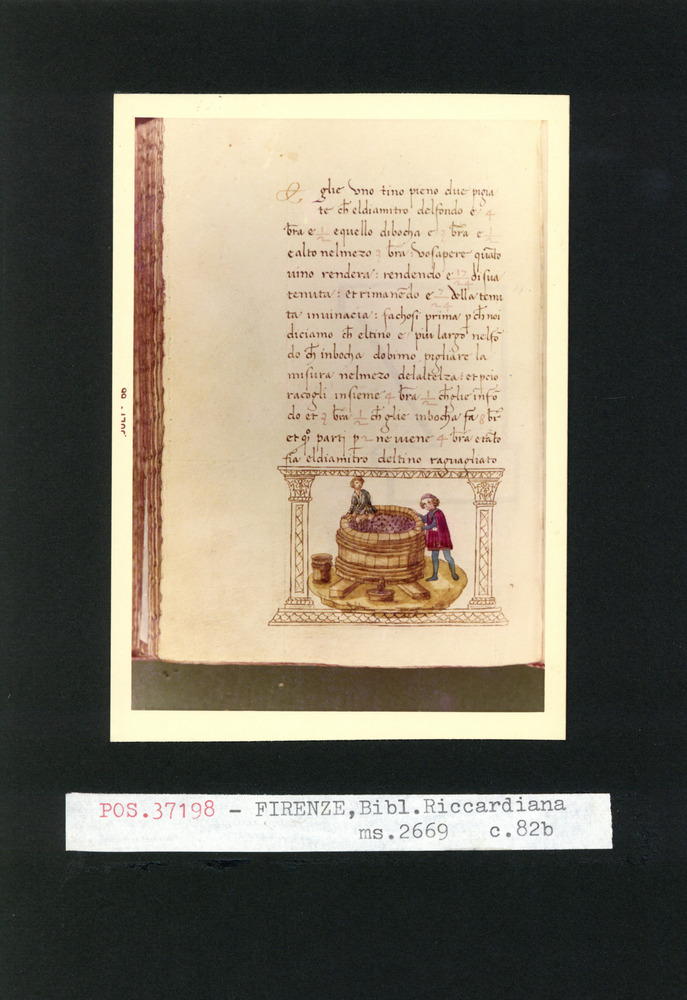 E glie vno tino pieno due pigia
te ch eldiamitro delfondo e 4
bra e 1/2 equello dibocha e 3 bra e 1/2
e alto nelmezo 3 bra: vosapere quāto
uino rendera: rendendo e 17/24 di sua
tenuta: et rimanēdo e 7/24 della tenu
ta inuinacia: fachosi prima p ch noi
diciamo ch eltino e piu largo nelfō
do ch inbocha dobimo pigliare la
misura nelmezo delalteza: et pcio
racogli insieme 4 bra 1/2 ch glie infō
do et 3 bra 1/2 ch glie inbocha fa 8 br
et qo parti p 2 ne uiene 4 bra etāto
fia eldiamitro deltino raguagliato
JULY · 66
POS.37198 - FIRENZE,Bibl.Riccardiana
ms.2669 c.82b